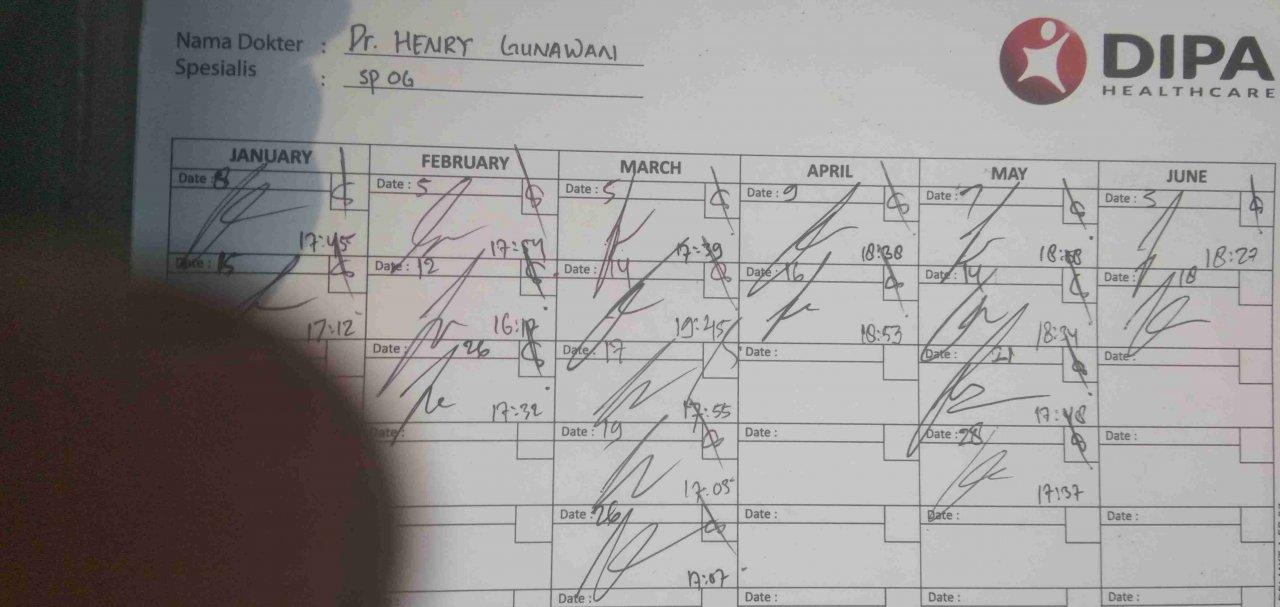 Nama Dokter : Dr. HENRY GUNAWAN
Spesialis : SP OG
DIPA
HEALTHCARE
JANUARY FEBRUARY MARCH APRIL MAY JUNE
Date : 8 Date : 5 Date : 5 Date : 9 Date : 7 Date : 3
17:45 17:54 17:39 18:38 18:27
Date : 15 Date : 12 Date : 14 Date : 16 Date : 14 18
17:12 16:17 19:45 18:53 18:34
Date : 26 Date : 17 Date : Date : 21 Date :
17:32 17:55 17:48
Date : Date : 19 Date : Date : 28 Date :
17:05 17:37
Date : 26 Date : Date : Date :
17:07
Date : Date : Date : Date :